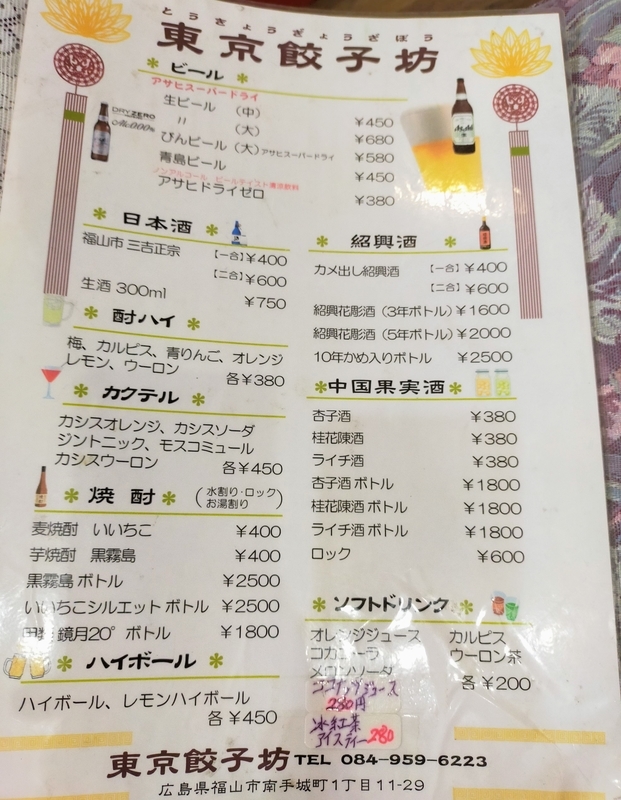 とうきょうぎょうざぼう
東京餃子坊
ビール
アサヒスーパードライ
生ビール (中) ¥450
〃 (大) ¥680
びんビール (大) アサヒスーパードライ ¥580
青島ビール ¥450
ノンアルコール ビールテイスト清涼飲料
アサヒドライゼロ ¥380
DRY ZERO
日本酒
福山市 三吉正宗 【一合】¥400
【二合】¥600
生酒 300ml ¥750
酎ハイ
梅、カルピス、青りんご、オレンジ
レモン、ウーロン
各¥380
カクテル
カシスオレンジ、カシスソーダ
ジントニック、モスコミュール
カシスウーロン 各¥450
焼酎 (水割り・ロック お湯割り)
麦焼酎 いいちこ ¥400
芋焼酎 黒霧島 ¥400
黒霧島 ボトル ¥2500
いいちこシルエット ボトル ¥2500
鏡月20° ボトル ¥1800
ハイボール
ハイボール、レモンハイボール
各 ¥450
紹興酒
カメ出し紹興酒 【一合】¥400
【二合】¥600
紹興花彫酒 (3年ボトル) ¥1600
紹興花彫酒 (5年ボトル) ¥2000
10年かめ入りボトル ¥2500
中国果実酒
杏子酒 ¥380
桂花陳酒 ¥380
ライチ酒 ¥380
杏子酒 ボトル ¥1800
桂花陳酒 ボトル ¥1800
ライチ酒 ボトル ¥1800
ロック ¥600
ソフトドリンク
オレンジジュース カルピス
コカコーラ ウーロン茶
メロンソーダ 各 ¥200
ココナッツジュース
280円
氷紅茶
アイスティー 280
東京餃子坊 TEL 084-959-6223
広島県福山市南手城町1丁目11-29